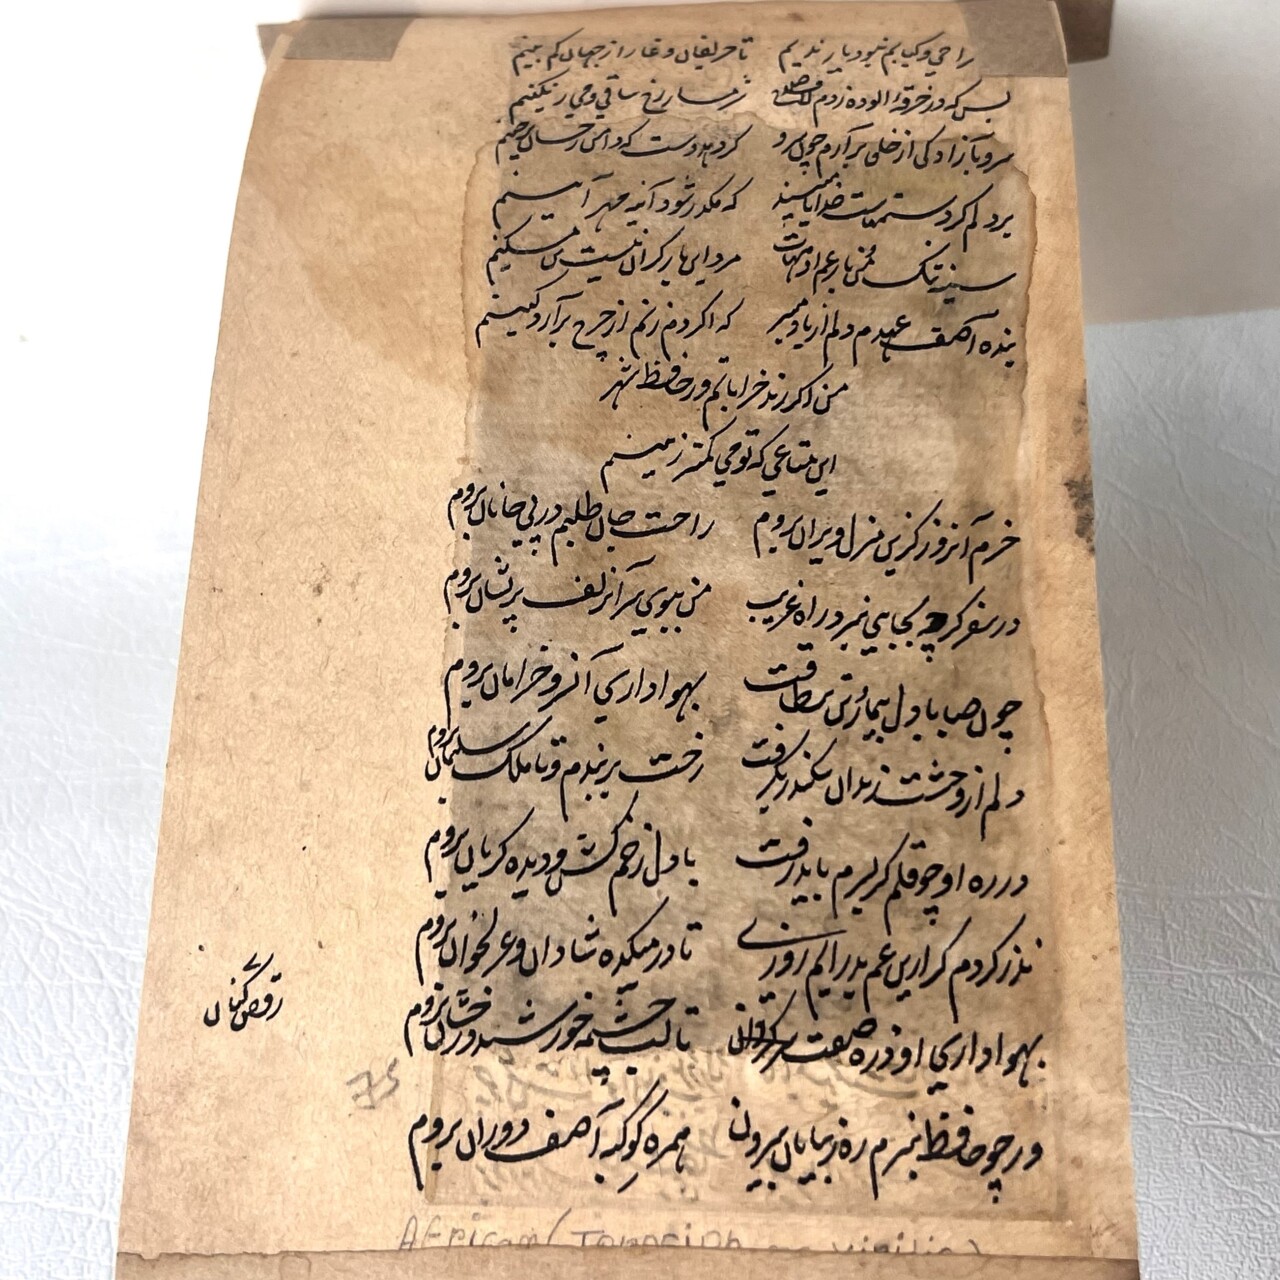 راحي و كتابم نبود يار نديم تا حريفان دغا را از جهان كم بينم
بس كه در خرقه الوده زدم لاف صلاح شرمسار رخ ساقي و مي رنگينم
سر بآزادكي از خلق برآرم چون سرو كر دهد دست كه دامن ز جهان درچينم
بر دلم كرد ستمهاست خدايا مپسند كه مكدر شود آئينه مهر آئينم
سينه تنك من و بار غم او هيهات مرد اين بار كران نيست من مسكينم
بنده آصف عهدم دلم از ياد مبر كه اكر دم زنم از چرخ برآرد كينم
من اكر رند خراباتم ور حافظ شهر
اين متاعي كه تو مي كمتر زينم
خرم آنروز كزين منزل ويران بروم راحت جان طلبم در پي جانان بروم
در سفر كرچه بجايي نبرد راه غريب من ببوي سر آنزلف پريشان بروم
چون صبا با دل بيمار تن بيطاقت بهواداري آنسرو خرامان بروم
دلم از وحشت زندان سكندر بكرفت رخت بربندم و تا ملك سليمان بروم
در ره او چو قلم كر بسرم بايد رفت با دل زخم كش و ديده كريان بروم
نذر كردم كر ازين غم بدر آيم روزي تا در ميكده شادان و غزلخوان بروم
بهواداري او ذره صفت تا لب چشمه خورشيد درخشان بروم
رقص كنان
75
ور چو حافظ نبرم ره ز بيابان بيرون همره كوكبه آصف دوران بروم